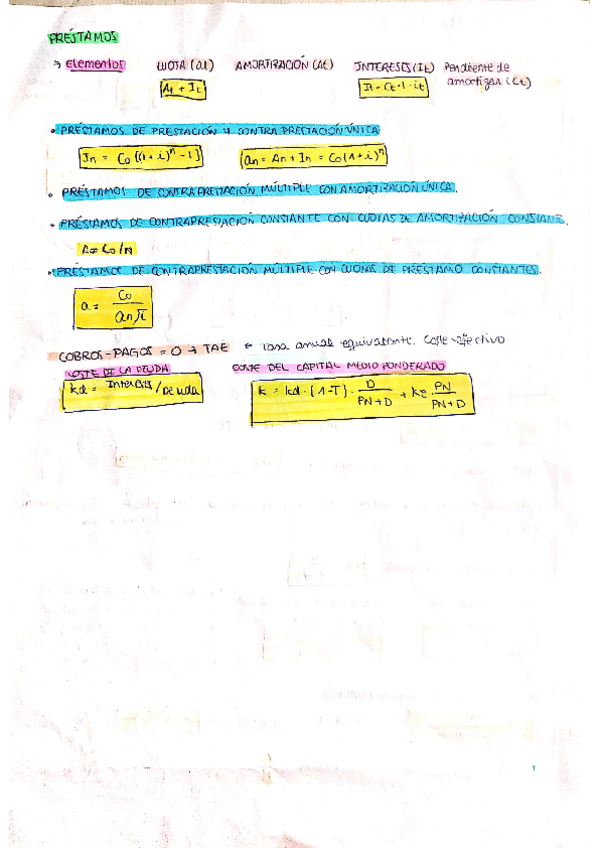 PRÉSTAMOS
→ elementos CUOTA (at) AMORTIZACIÓN (At) INTERESES (It) Pendiente de
amortizar (Ct)
At + It It = Ct-1 · it
• PRÉSTAMOS DE PRESTACIÓN Y CONTRAPRESTACIÓN ÚNICA
In = Co [(1+i)^n - 1] an = An + In = Co (1+i)^n
• PRÉSTAMOS DE CONTRAPRESTACIÓN MÚLTIPLE CON AMORTIZACIÓN ÚNICA.
• PRÉSTAMOS DE CONTRAPRESTACIÓN CONSTANTE CON CUOTAS DE AMORTIZACIÓN CONSTANTE.
A = Co/n
• PRÉSTAMOS DE CONTRAPRESTACIÓN MÚLTIPLE CON CUOTAS DE PRÉSTAMO CONSTANTES.
a = Co / an⅂i
COBROS - PAGOS = 0 → TAE tasa anual equivalente. Coste efectivo
COSTE DE LA DEUDA COSTE DEL CAPITAL MEDIO PONDERADO
kd = Intereses / Deuda k = kd · (1-T) · D / PN+D + ke PN / PN+D